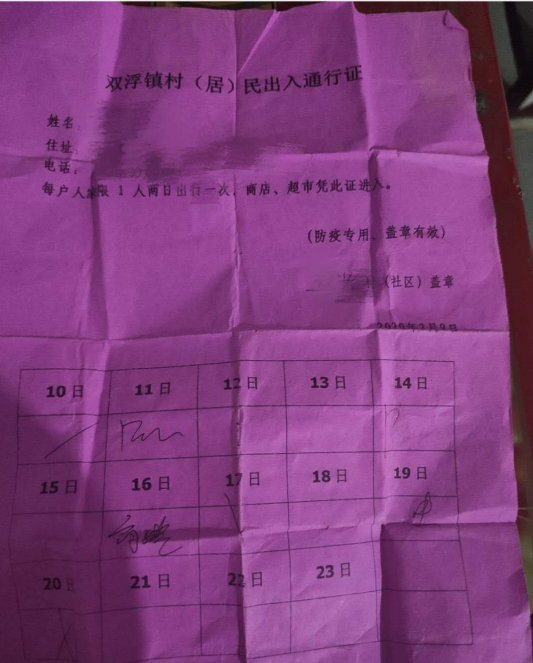 双浮镇村（居）民出入通行证
姓名
住址
电话：
每户人家限 1 人两日出行一次，商店、超市凭此证进入。
（防疫专用，盖章有效）
（社区）盖章
2020年2月9日
10日 11日 12日 13日 14日
15日 16日 17日 18日 19日
20日 21日 22日 23日